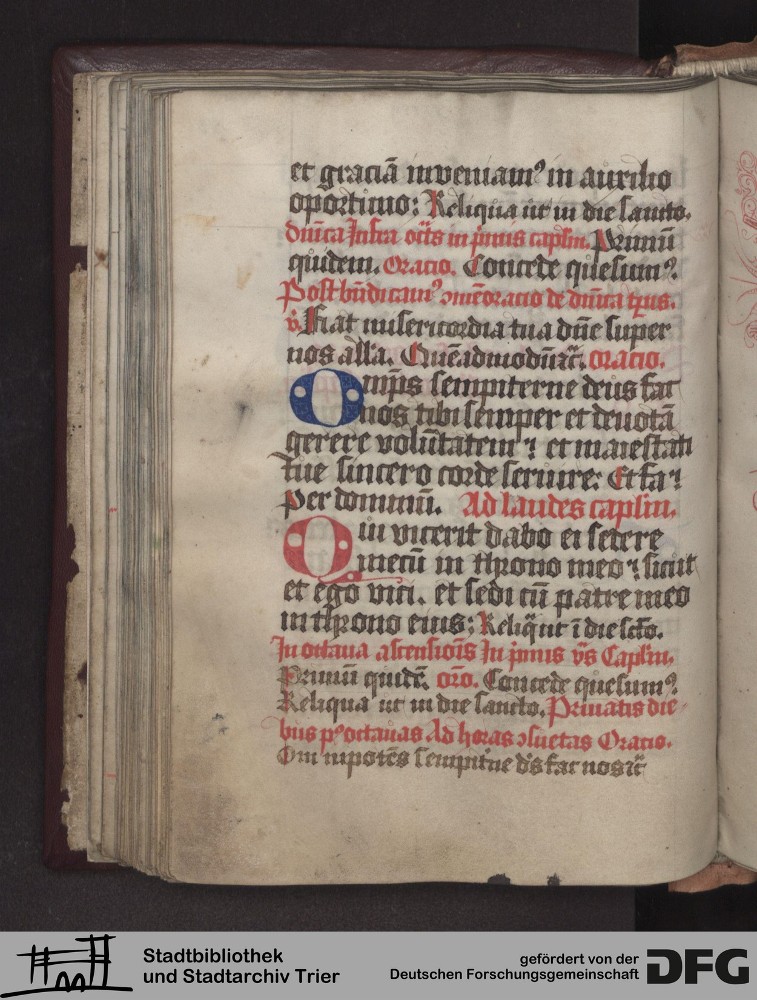 et graciā inueniam⁹ in auxilio
oportuno: Reliqua ut in die sancto.
dn̄ica Infra oct̄s in p̄mis cap̄lm. Primū
quidem. Oracio. Concede quesum⁹.
Post bn̄dicam⁹ ɔmēoracio de dn̄ica
v̄. Fiat misericordia tua dn̄e super
nos all̓a. Quēadmodū. oracio.
Omp̄s sempiterne deus fac
nos tibi semper et deuotā
gerere volūtatem ⁊ et maiestati
tue sincero corde seruire: Et fa⁊
Per dominū. Ad laudes cap̄lm.
Qui vicerit dabo ei sedere
mecū in throno meo ⁊ sicut
et ego vici. et sedi cū patre meo
in throno eius: Reliq̄ ut ī die scō.
In octaua ascensiōis In p̄mis v̄s Cap̄lm.
Primū quidē. or̄o. Concede quesum⁹.
Reliqua ut in die sancto. Priuatis die
bus p⁹ octauas Ad horas ɔsuetas Oracio.
Omnipotēs sempit̄ne d̄s fac nos
Stadtbibliothek
und Stadtarchiv Trier
gefördert von der
Deutschen Forschungsgemeinschaft
DFG